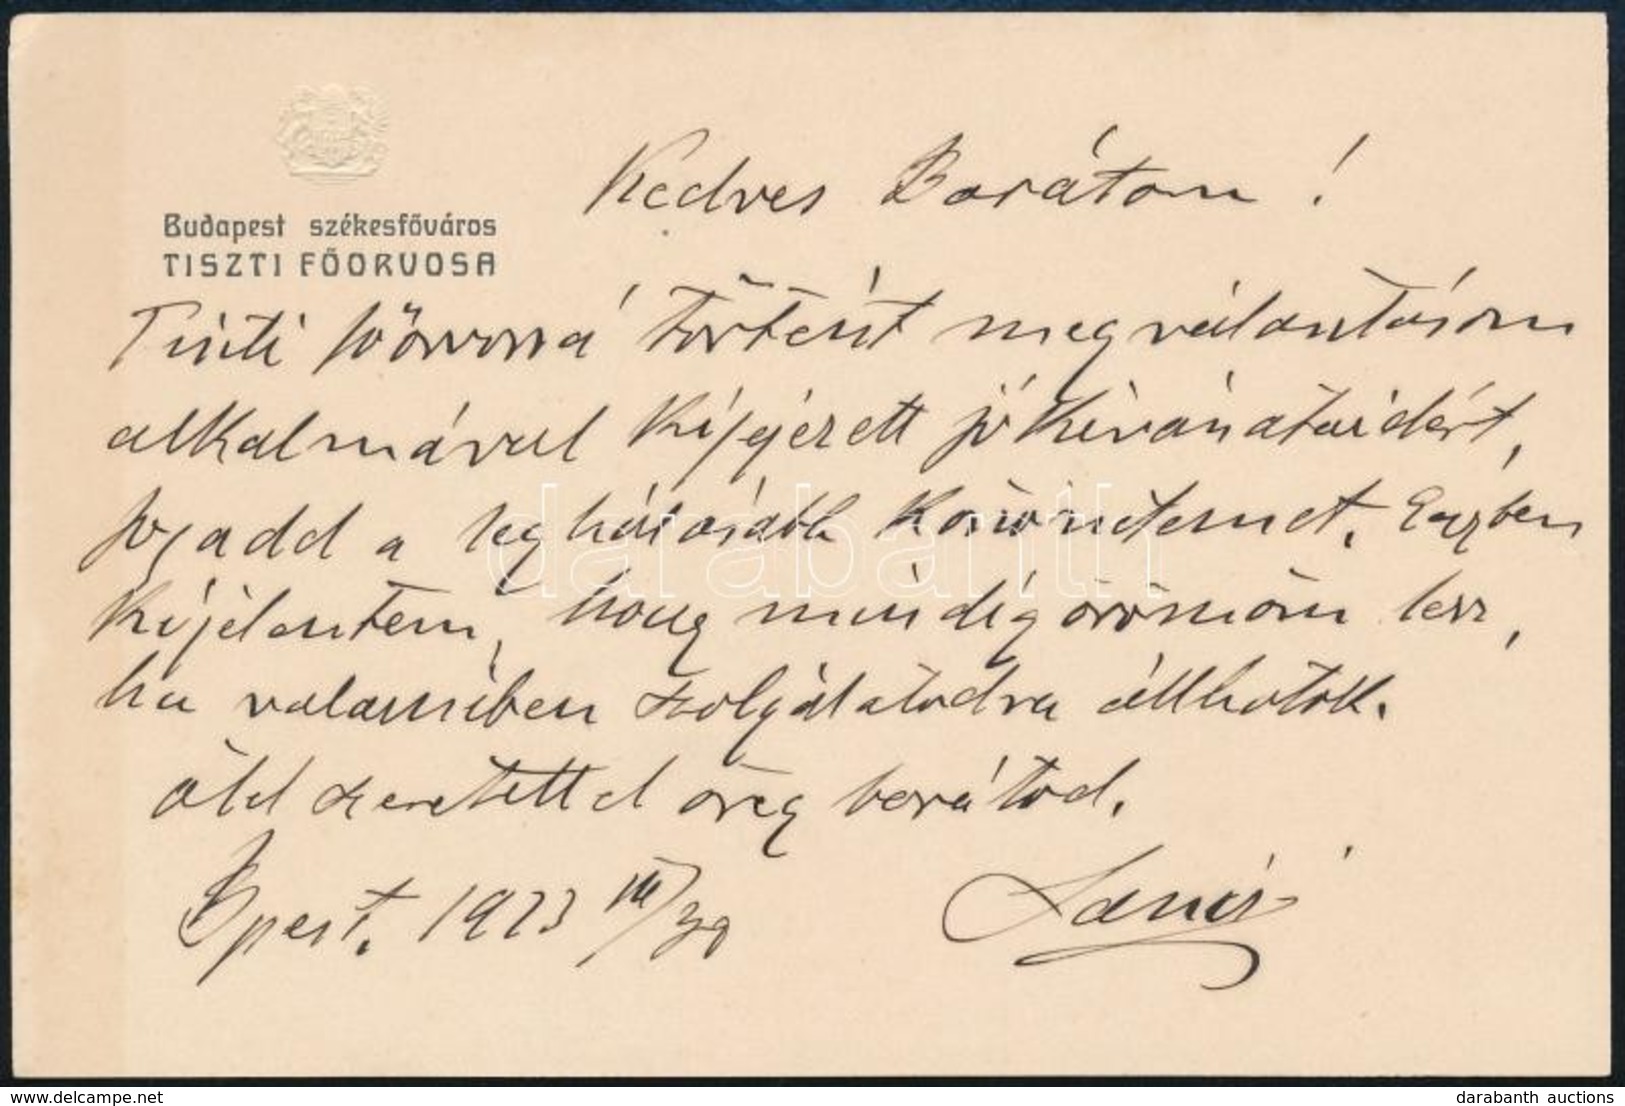 Budapest székesfőváros
TISZTI FŐORVOSA
Kedves Barátom!
Tiszti főorvossá történt megválasztásom
alkalmával kifejezett jókivánataidért,
fogadd a leghálásabb köszönetemet. Egyben
kijelentem, hogy mindig örömöm lesz,
ha valamiben szolgálatodra állhatok.
ölel szeretettel öreg barátod.
Bpest. 1923 III/30
darabanth
darabanth auctions
www.delcampe.net